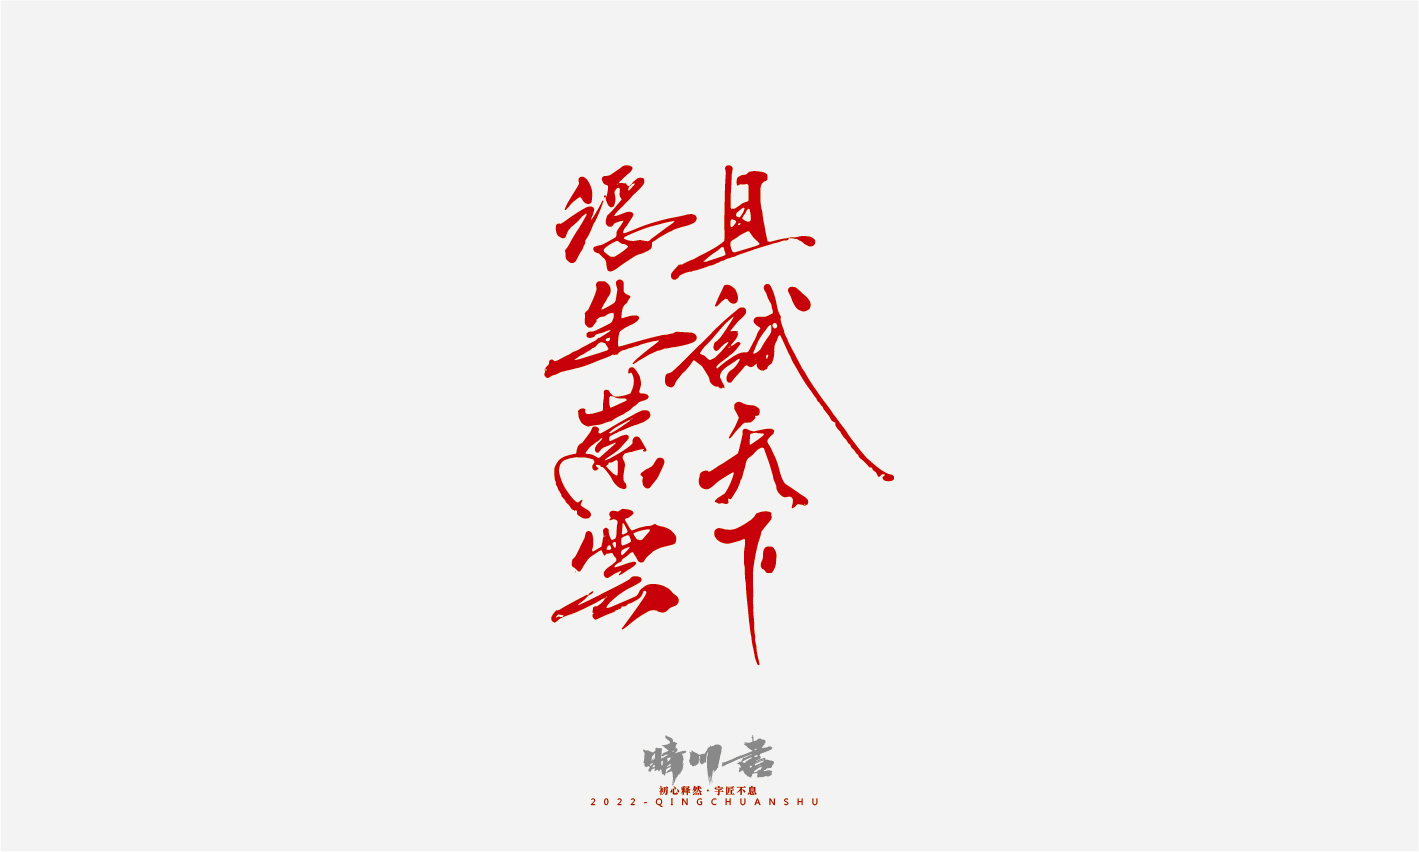 且試天下
浮生萦雲
晴川書
初心释然·字匠不息
2022-QINGCHUANSHU